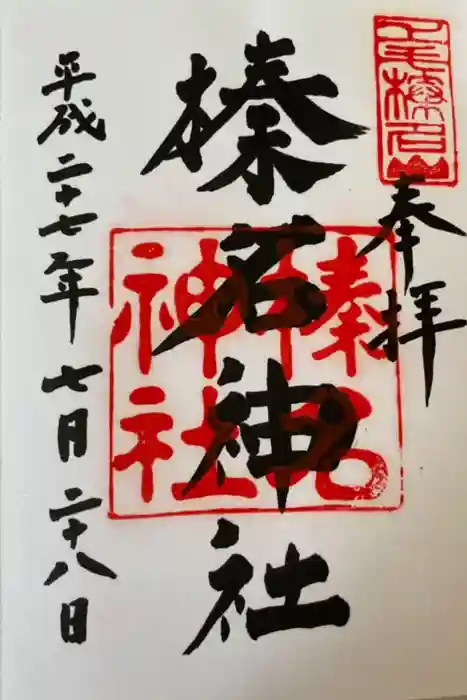 奉拝
榛名神社
榛名神社
平成二十七年七月二十八日